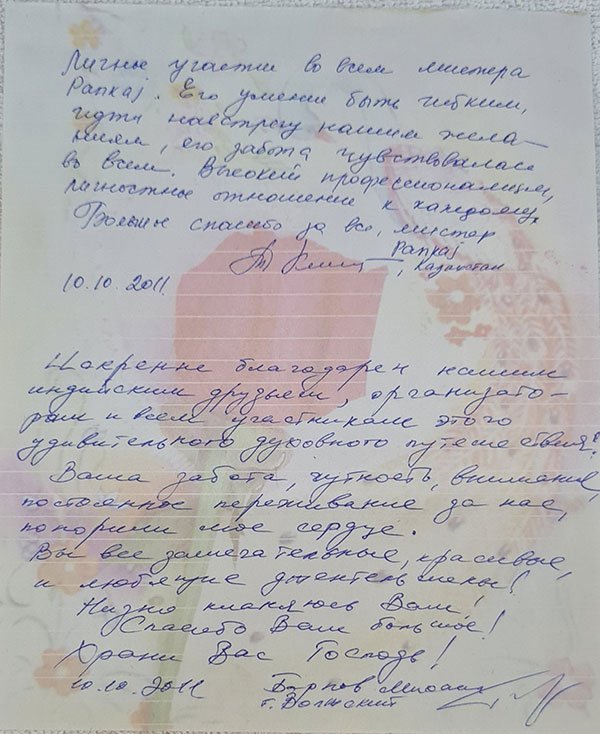 Личное участие во всем мистера
Pankaj. Его умение быть гибким,
идти навстречу нашим жела-
ниям, его забота чувствовалась
во всем. Высокий профессионализм,
личностное отношение к каждому.
Большое спасибо за все, мистер
Pankaj
, Казахстан
10.10.2011.
Искренне благодарен нашим
индийским друзьям, организато-
рам и всем участникам этого
удивительного духовного путешествия!
Ваша забота, чуткость, внимание,
постоянное переживание за нас,
покорили мое сердце.
Вы все замечательные, красивые,
и любящие
Низко кланяюсь Вам!
Спасибо Вам большое!
Храни Вас Господь!
10.10.2011
г. Волжский